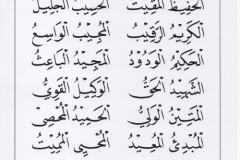 الْحَفِيظُ الْمُقِيتُ الْحَسِيبُ الْجَلِيلُ
الْكَرِيمُ الرَّقِيبُ الْمُجِيبُ الْوَاسِعُ
الْحَكِيمُ الْوَدُودُ الْمَجِيدُ الْبَاعِثُ
الشَّهِيدُ الْحَقُّ الْوَكِيلُ الْقَوِيُّ
الْمَتِينُ الْوَلِيُّ الْحَمِيدُ الْمُحْصِي
الْمُبْدِئُ الْمُعِيدُ الْمُحْيِي الْمُمِيتُ